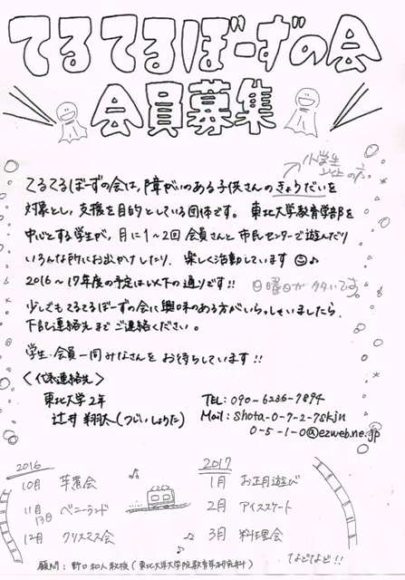 てるてるぼーずの会
会員募集
小学生
以上の方
てるてるぼーずの会は、障がいのある子供さんのきょうだいを
対象とし、支援を目的としている団体です。東北大学教育学部を
中心とする学生が、月に1〜2回会員さんと市民センターで遊んだり
いろんな所にお出かけしたり、楽しく活動しています♪
2016〜17年度の予定は以下の通りです!! 日曜日が多いです。
少しでもてるてるぼーずの会に興味のある方がいらっしゃいましたら、
下記連絡先までご連絡ください。
学生・会員一同みなさんをお待ちしています!!
〈代表連絡先〉
東北大学2年
辻井翔太(つじいしょうた)
TEL: 090-6236-7894
Mail: shota-0-7-2-78kin
0-5-1-0@ezweb.ne.jp
2016
10月 芋煮会
11月 ベニーランド
13日
12月 クリスマス会
2017
1月 お正月遊び
2月 アイススケート
3月 料理会
などなど!!
顧問:野口和人教授(東北大学大学院教育学研究科)